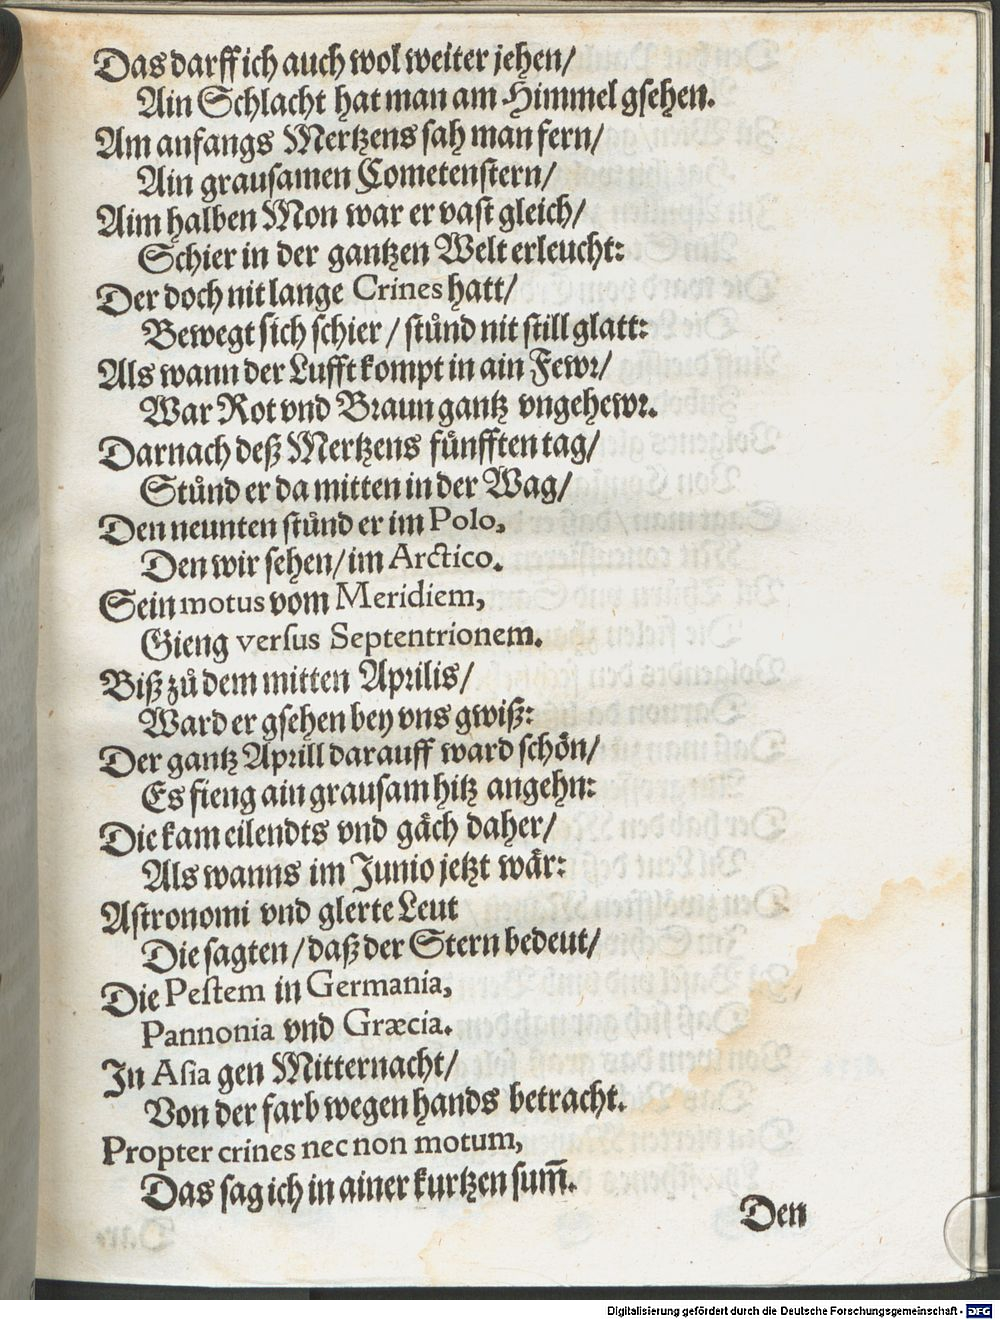 Das darff ich auch wol weiter jehen/
Ain Schlacht hat man am Himmel gsehen.
Am anfangs Mertzens sah man fern/
Ain grausamen Cometenstern/
Aim halben Mon war er vast gleich/
Schier in der gantzen Welt erleucht:
Der doch nit lange Crines hatt/
Bewegt sich schier / stůnd nit still glatt:
Als wann der Lufft kompt in ain Fewr/
War Rot vnd Braun gantz vngehewr.
Darnach deß Mertzens fünfften tag/
Stůnd er da mitten in der Wag/
Den neunten stůnd er im Polo,
Den wir sehen/im Arctico.
Sein motus vom Meridiem,
Gieng versus Septentrionem.
Biß zů dem mitten Aprilis/
Ward er gsehen bey vns gwiß:
Der gantz Aprill darauff ward schön/
Es fieng ain grausam hitz angehn:
Die kam eilendts vnd gäch daher/
Als wanns im Junio jetzt wär:
Astronomi vnd glerte Leut
Die sagten/daß der Stern bedeut/
Die Pestem in Germania,
Pannonia vnd Græcia.
In Asia gen Mitternacht/
Von der farb wegen hands betracht.
Propter crines nec non motum,
Das sag ich in ainer kurtzen sum̃.
Den
Digitalisierung gefördert durch die Deutsche Forschungsgemeinschaft - DFG